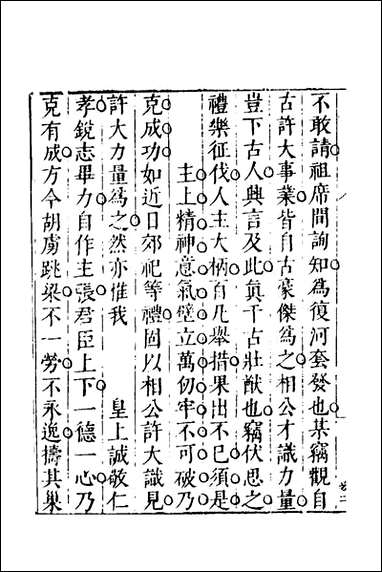 不敢請祖席間詢知為復河套發也某竊觀自
古許大事業皆自古豪傑為之相公才識力量
豈下古人興言及此真千古壯猷也竊伏思之
禮樂征伐人主大柄百凡舉措果出不已須是
主上精神意氣壁立萬仞牢不可破乃
克成功如近日郊祀等禮固以相公許大識見
許大力量為之然亦惟我　　皇上誠敬仁
孝銳志畢力自作主張君臣上下一德一心乃
克有成方今胡虜跳梁不一勞不永逸擣其巢
卷二